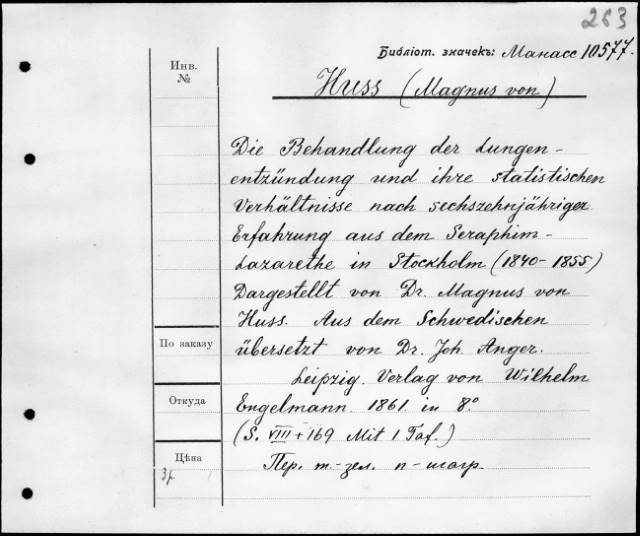 263
Библіот. значекъ: Манасс 10577.
Инв.
№
Huss (Magnus von)
Die Behandlung der Lungen-
entzündung und ihre statistischen
Verhältnisse nach sechszehnjähriger
Erfahrung aus dem Seraphim-
Lazarethe in Stockholm (1840-1855)
Dargestellt von Dr. Magnus von
Huss. Aus dem Schwedischen
По заказу
übersetzt von Dr. Joh. Anger.
Leipzig. Verlag von Wilhelm
Откуда
Engelmann. 1861. in 8.°
(S. VIII + 169 Mit 1 Taf.)
Цѣна
Пер. т.-зел. п-шагр.
3р